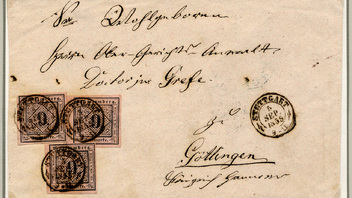 Sr Wohlgeboren
Herrn Ober-Gerichts-Anwalt
Doctor jur Grefe.
zu
Göttingen
Königreich Hannover
STUTTGART
5
SEP
1858
9
9
9